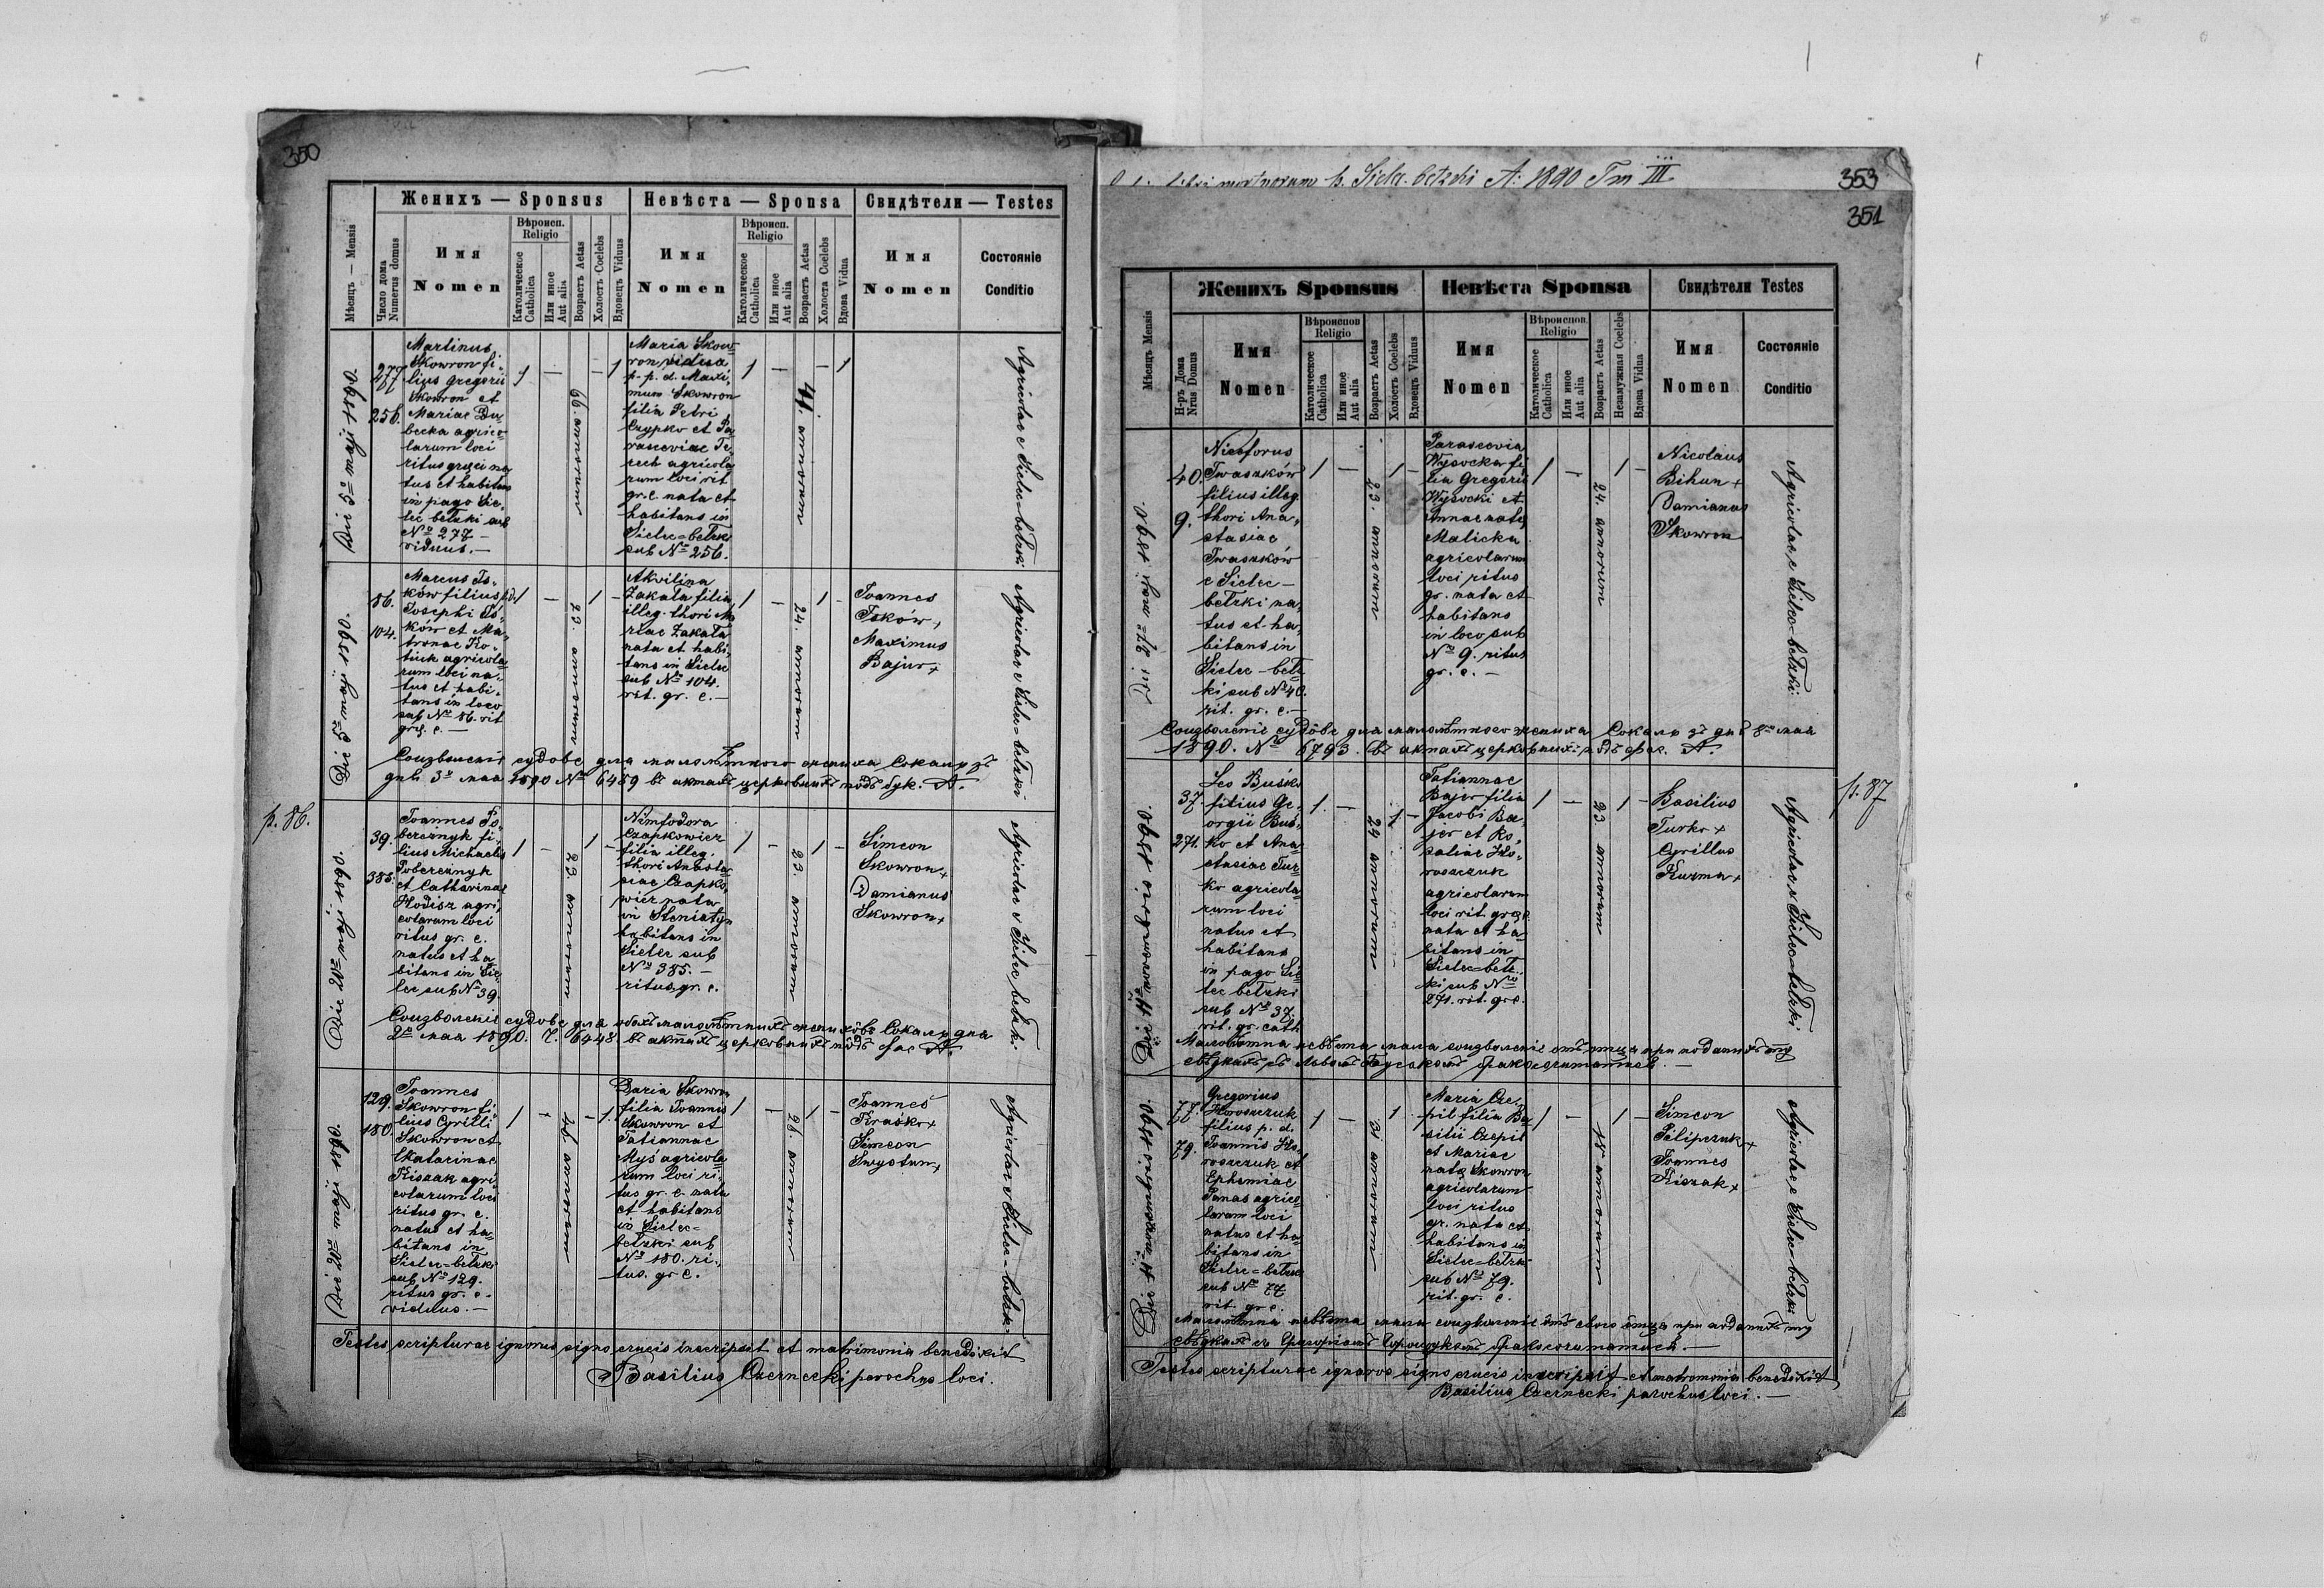 350
Женихъ — Sponsus
Невѣста — Sponsa
Свидѣтели — Testes
Мѣсяцъ — Mensis
Число дома
Numerus domus
Имя
Nomen
Вѣроисп.
Religio
Католическое
Catholica
Или иное
Aut alia
Возрастъ Aetas
Холостъ Coelebs
Вдовецъ Viduus
Имя
Nomen
Вѣроисп.
Religio
Католическое
Catholica
Или иное
Aut alia
Возрастъ Aetas
Холоста Coelebs
Вдова Vidua
Имя
Nomen
Состояніе
Conditio
Die 5= maji 1890.
277
256.
Martinus
Skowron fi-
lius Gregorii
Skowron et
Mariae Du-
becka agrico-
larum loci
ritus graeci na
tus et habitans
in pago Sie-
lec betzki sub
No 277 —
viduus. —
1 — — 1
66. annorum
Maria Skow-
ron vidua
p. p. d. Maxi-
mum Skowron
filia Petri
Czypko et Pa-
rasceviae Te-
rech agricola
rum loci rit
gr. c. nata et
habitans in
Sielec=betzki
sub No 256.
1 — — 1
44. annorum
Agricolae e Sielec=betzki
Die 5= maji 1890.
86.
104.
Marcus Is-
ków filius
Josephi Is-
ków et Ma-
tronae Ko-
tiuk agricola
rum loci na-
tus et habi-
tans in loco
sub No 86. rit
gr. c. —
1 — 1 —
23. annorum
Akvilina
Zakała filia
illeg. thori Ma
riae Zakała
nata et habi-
tans in Sielec
sub No 104.
rit. gr. c. —
1 — 1 —
24. annorum
Joannes
Isków +
Maximus
Bajur +
Agricolae e Sielec=betzki
Соизволеніе судове для малолѣтного жениха Сокаль зъ
дня 3го мая 1890 No 6489 въ актахъ церковныхъ подъ бук. А.
p. 86.
Die 20= maji 1890.
39.
385.
Joannes Po-
bereznyk fi-
lius Michaelis
Pobereznyk
et Catharinae
Hodisz agri-
colarum loci
ritus gr. c.
natus et ha
bitans in Sie
lec sub No 39.
1 — 1 —
23 annorum
Nimfodora
Czapkowicz
filia illeg.
thori Anasta-
siae Czapko-
wicz nata
in Steniatyn
habitans in
Sielec sub
No 385. —
ritus gr. c.
1 — 1 —
23. annorum
Simeon
Skowron +
Damianus
Skowron +
Agricolae e Sielec betzki.
Соизволеніе судове для обохъ малолѣтныхъ жениховъ Сокаль дня
2го мая 1890. Ч. 6448. въ актахъ церковныхъ подъ фас А.
Die 26= maji 1890.
129.
180.
Joannes
Skowron fi-
lius Cyrilli
Skowron et
Ekatarinae
Kiszak agri
colarum loci
ritus gr. c.
natus et ha-
bitans in
Sielec=betzki
sub No 129.
ritus gr. c.
viduus. —
1 — — 1.
46 annorum
Daria Skowron
filia Joannis
Skowron et
Tatiannae
Myś agricola
rum loci ri-
tus gr. c. nata
et habitans
in Sielec=
betzki sub
No 180. ri-
tus. gr c.
1 — 1 —
26. annorum
Joannes
Kraśko +
Simeon
Swystun +
Agricolae e Sielec=betzki
Testes scripturae ignaros signo crucis inscripsit et matrimonia benedixit
Basilius Czernecki parochus loci.
libri mortuorum p. Sielec-betzki A: 1890 Tm III
353
351
Женихъ Sponsus
Невѣста Sponsa
Свидѣтели Testes
Мѣсяцъ Mensis
Н-ръ Дома
Nrus Domus
Имя
Nomen
Вѣроиспов
Religio
Католическое
Catholica
Или иное
Aut alia
Возрастъ Aetas
Холостъ Coelebs
Вдовецъ Viduus
Имя
Nomen
Вѣроиспов.
Religio
Католическое
Catholica
Или иное
Aut alia
Возрастъ Aetas
Незамужная Coelebs
Вдова Vidua
Имя
Nomen
Состояніе
Conditio
Die 26= maji 1890.
40.
9.
Niceforus
Iwaszków
filius illeg.
thori Ana-
stasiae
Iwaszków
e Sielec —
betzki na-
tus et ha-
bitans in
Sielec — betz
ki sub No 40.
rit. gr. c. —
1 — 1 —
23. annorum
Parascevia
Wysocka fi-
lia Gregorii
Wysocki et
Annae nata
Malicka
agricolarum
loci ritus
gr. nata et
habitans
in loco sub
No 9. ritus
gr. c. —
1 — 1 —
24. annorum
Nicolaus
Bihun +
Damianus
Skowron
Agricolae e Sielec=betzki.
Соизволеніе судове для малолѣтного жениха Сокаль зъ дня 8го мая
1890. No 6793. въ актахъ церковныхъ подъ фас. А.
p. 87
37.
271.
Leo Buśko
filius Ge-
orgii Buś-
ko et Ana-
stasiae Tur-
ko agricola
rum loci
natus et
habitans
in pago Sie
lec betzki
sub No 37.
rit. gr. cath
1. — 1 —
24 annorum
Tatiannae
Bajer filia
Jacobi Ba-
jer et Ro-
saliae Ho-
roszczuk
agricolarum
loci rit. gr. c.
nata et ha-
bitans in
Sielec=betz-
ki sub No
271. rit. gr c.
1 — 1 —
23. annorum
Basilius
Turko +
Cyrillus
Kuzma +
Agricolae e Sielec=betzki
Малолѣтна невѣста мала соизволеніе отъ отца при поданыхъ ту
свѣдкахъ съ Львомъ Буськомъ бракосочитатися. —
77.
79.
Gregorius
Horoszczuk
filius p. d.
Joannis Ho-
roszczuk et
Ephemiae
Panas agrico
larum loci
natus et ha-
bitans in
Sielec=betzki
sub No 77
rit. gr c.
1 — 1
31 annorum
Maria Cze-
pil filia Ba-
silii Czepil
et Mariae
nata Skowron
agricolarum
loci ritus
gr. nata et
habitans in
Sielec=betzki
sub No 79.
rit. gr. c.
1 — 1 —
18 annorum
Simeon
Pilipczuk +
Joannes
Kiszak +
Agricolae e Sielec-betzki
Малолѣтна невѣста мала соизволеніе отъ свого отца при поданыхъ ту
свѣдкахъ съ Григоріемъ Горощукомъ бракосочитатися. —
Testes scripturae ignaros signo crucis inscripsit et matrimonia benedixit
Basilius Czernecki parochus loci. —